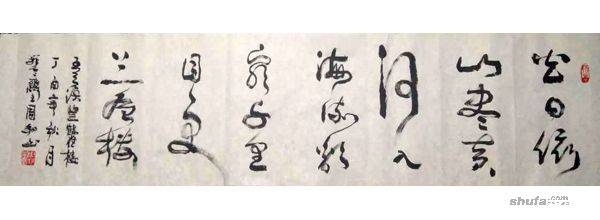 白日依
山盡黃
河入
海流欲
窮千里
目更
上一層樓
王之渙登鸛雀樓
丁酉年秋月
shufa.com